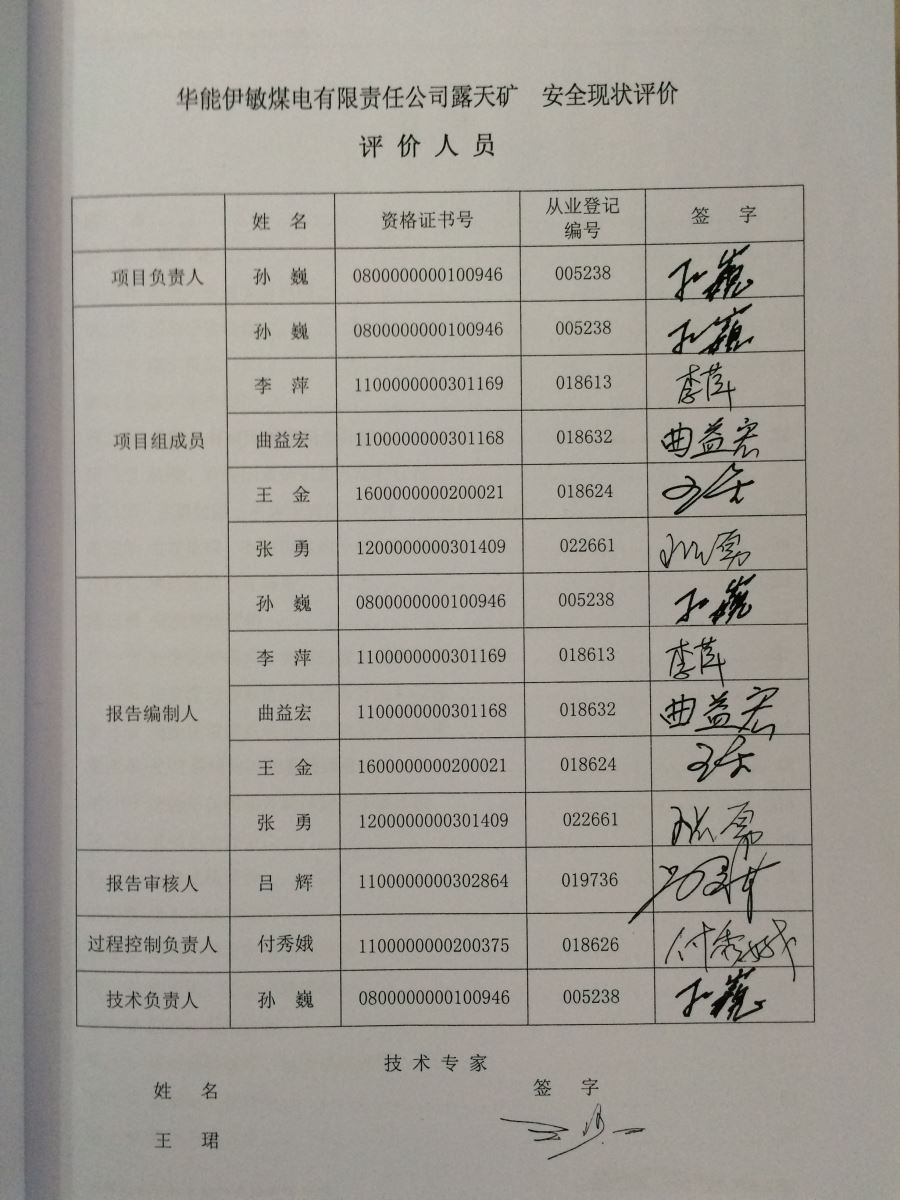 华能伊敏煤电有限责任公司露天矿 安全现状评价
评价人员
姓 名 资格证书号 从业登记编号 签 字
项目负责人 孙 巍 0800000000100946 005238 孙巍
项目组成员 孙 巍 0800000000100946 005238 孙巍
李 萍 1100000000301169 018613 李萍
曲益宏 1100000000301168 018632 曲益宏
王 金 1600000000200021 018624 王金
张 勇 1200000000301409 022661 张勇
报告编制人 孙 巍 0800000000100946 005238 孙巍
李 萍 1100000000301169 018613 李萍
曲益宏 1100000000301168 018632 曲益宏
王 金 1600000000200021 018624 王金
张 勇 1200000000301409 022661 张勇
报告审核人 吕 辉 1100000000302864 019736
过程控制负责人 付秀娥 1100000000200375 018626 付秀娥
技术负责人 孙 巍 0800000000100946 005238 孙巍
技术专家
姓 名 签 字
王 珺